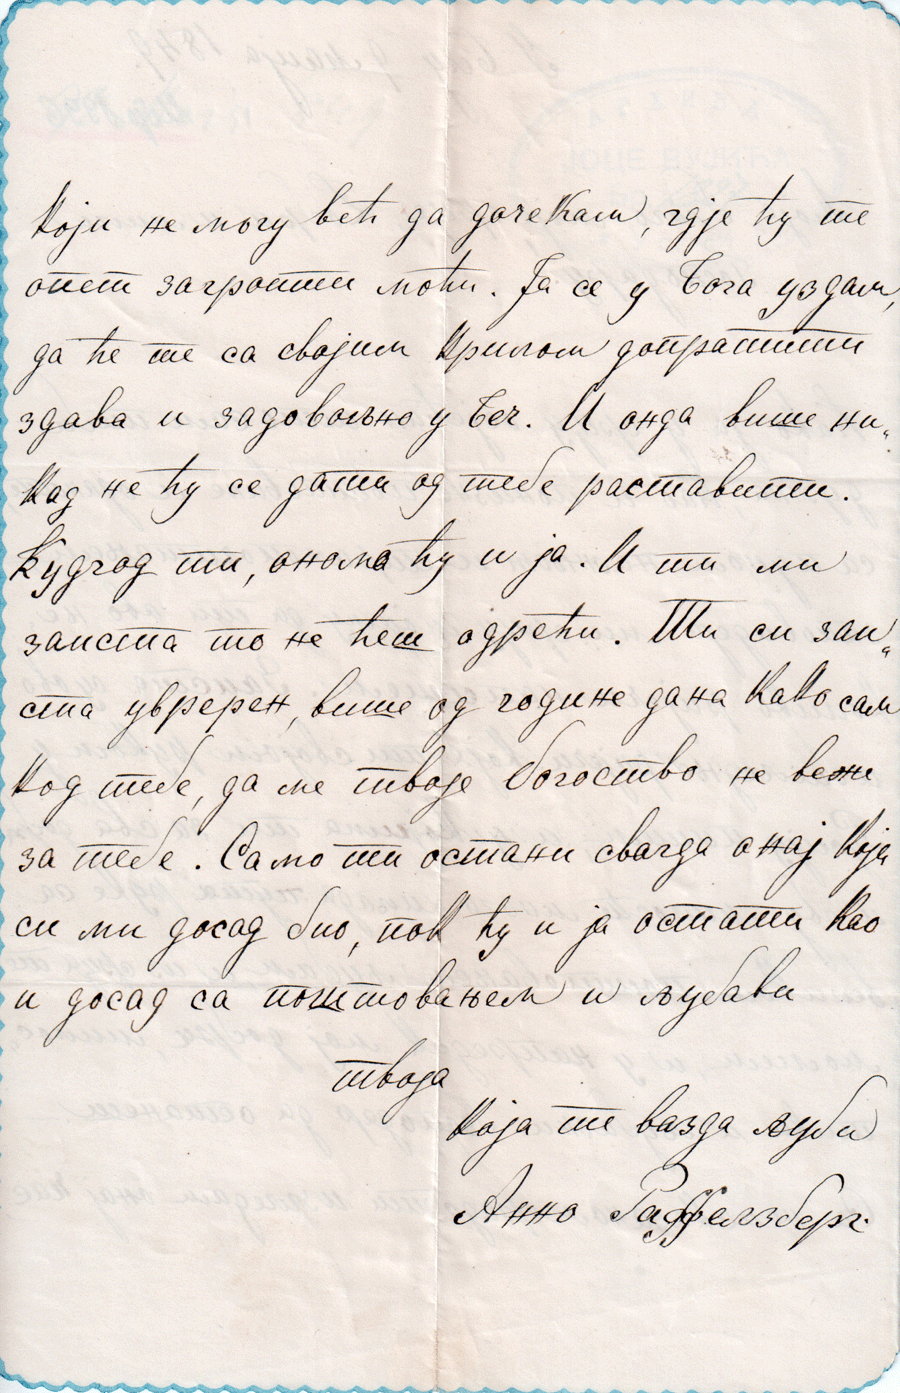 Који не могу већ да дочекам, гдје ћу те
опет загрлити моћи. Ја се у Бога уздам,
да ће те са својим крилом допратити
здава и задовољно у Беч. И онда више ни„
кад не ћу се дати од тебе раставити.
Кудгод ти, онома ћу и ја. И ти ми
заиста то не ћеш одрећи. Ти си заи„
ста увререн, више од године дана како сам
код тебе, да ме твоје богоство не веже
за тебе. Само ти остани свагда онај који
си ми досад био, пак ћу и ја остати као
и досад са поштовањем и љубави
твоја
Која те вазда љуби
Анна Раффелзберг.